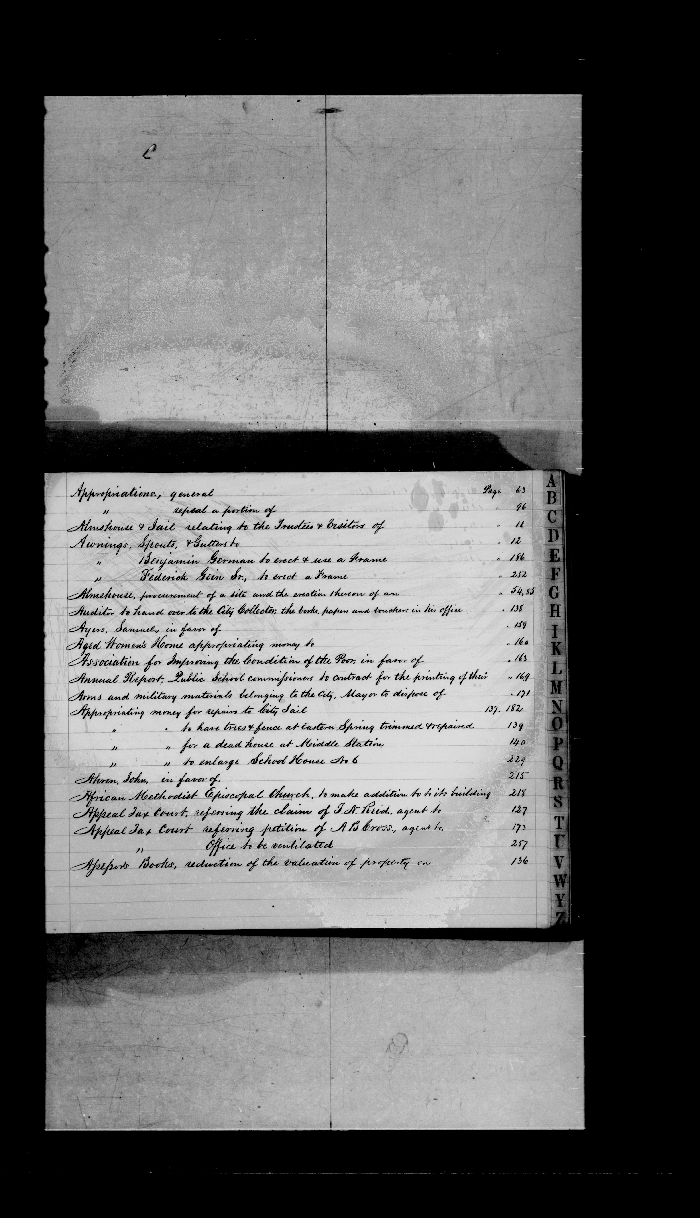 Appropriations, general Page 63
" repeal a portion of " 96
Almshouse & Jail relating to the Trustees & Visitors of " 11
Awnings, Spouts, & Gutters to " 12
" Benjamin German to erect & use a Frame " 186
" Federick Gein Sr., to erect a Frame " 252
Almshouse, procurement of a site and the erection thereon of an " 54,55
Auditor to hand over to the City Collector, the books, papers and vouchers in his office " 138
Ayers, Samuel, in favor of " 159
Aged Women's Home appropriating money to " 160
Association for Improving the Condition of the Poor, in favor of " 163
Annual Report, Public School commissioners to contract for the printing of their " 169
Arms and military materials belonging to the City, Mayor to dispose of " 171
Appropriating money for repairs to City Jail 137, 182
" " to have trees & fence at Eastern Spring trimmed & repaired 139
" " for a dead house at Middle Station 140
" " to enlarge School House No 6 229
Ahren, John, in favor of 215
African Methodist Episcopal Church, to make addition to its building 218
Appeal Tax Court, referring the claim of agent to 127
Appeal Tax Court referring petition of A B Cross, agent to 173
" Office to be ventilated 257
Assessors Books, reduction of the valuation of property on 136
A
B
C
D
E
F
G
H
I
K
L
M
N
O
P
Q
R
S
T
U
V
W
Y
Z